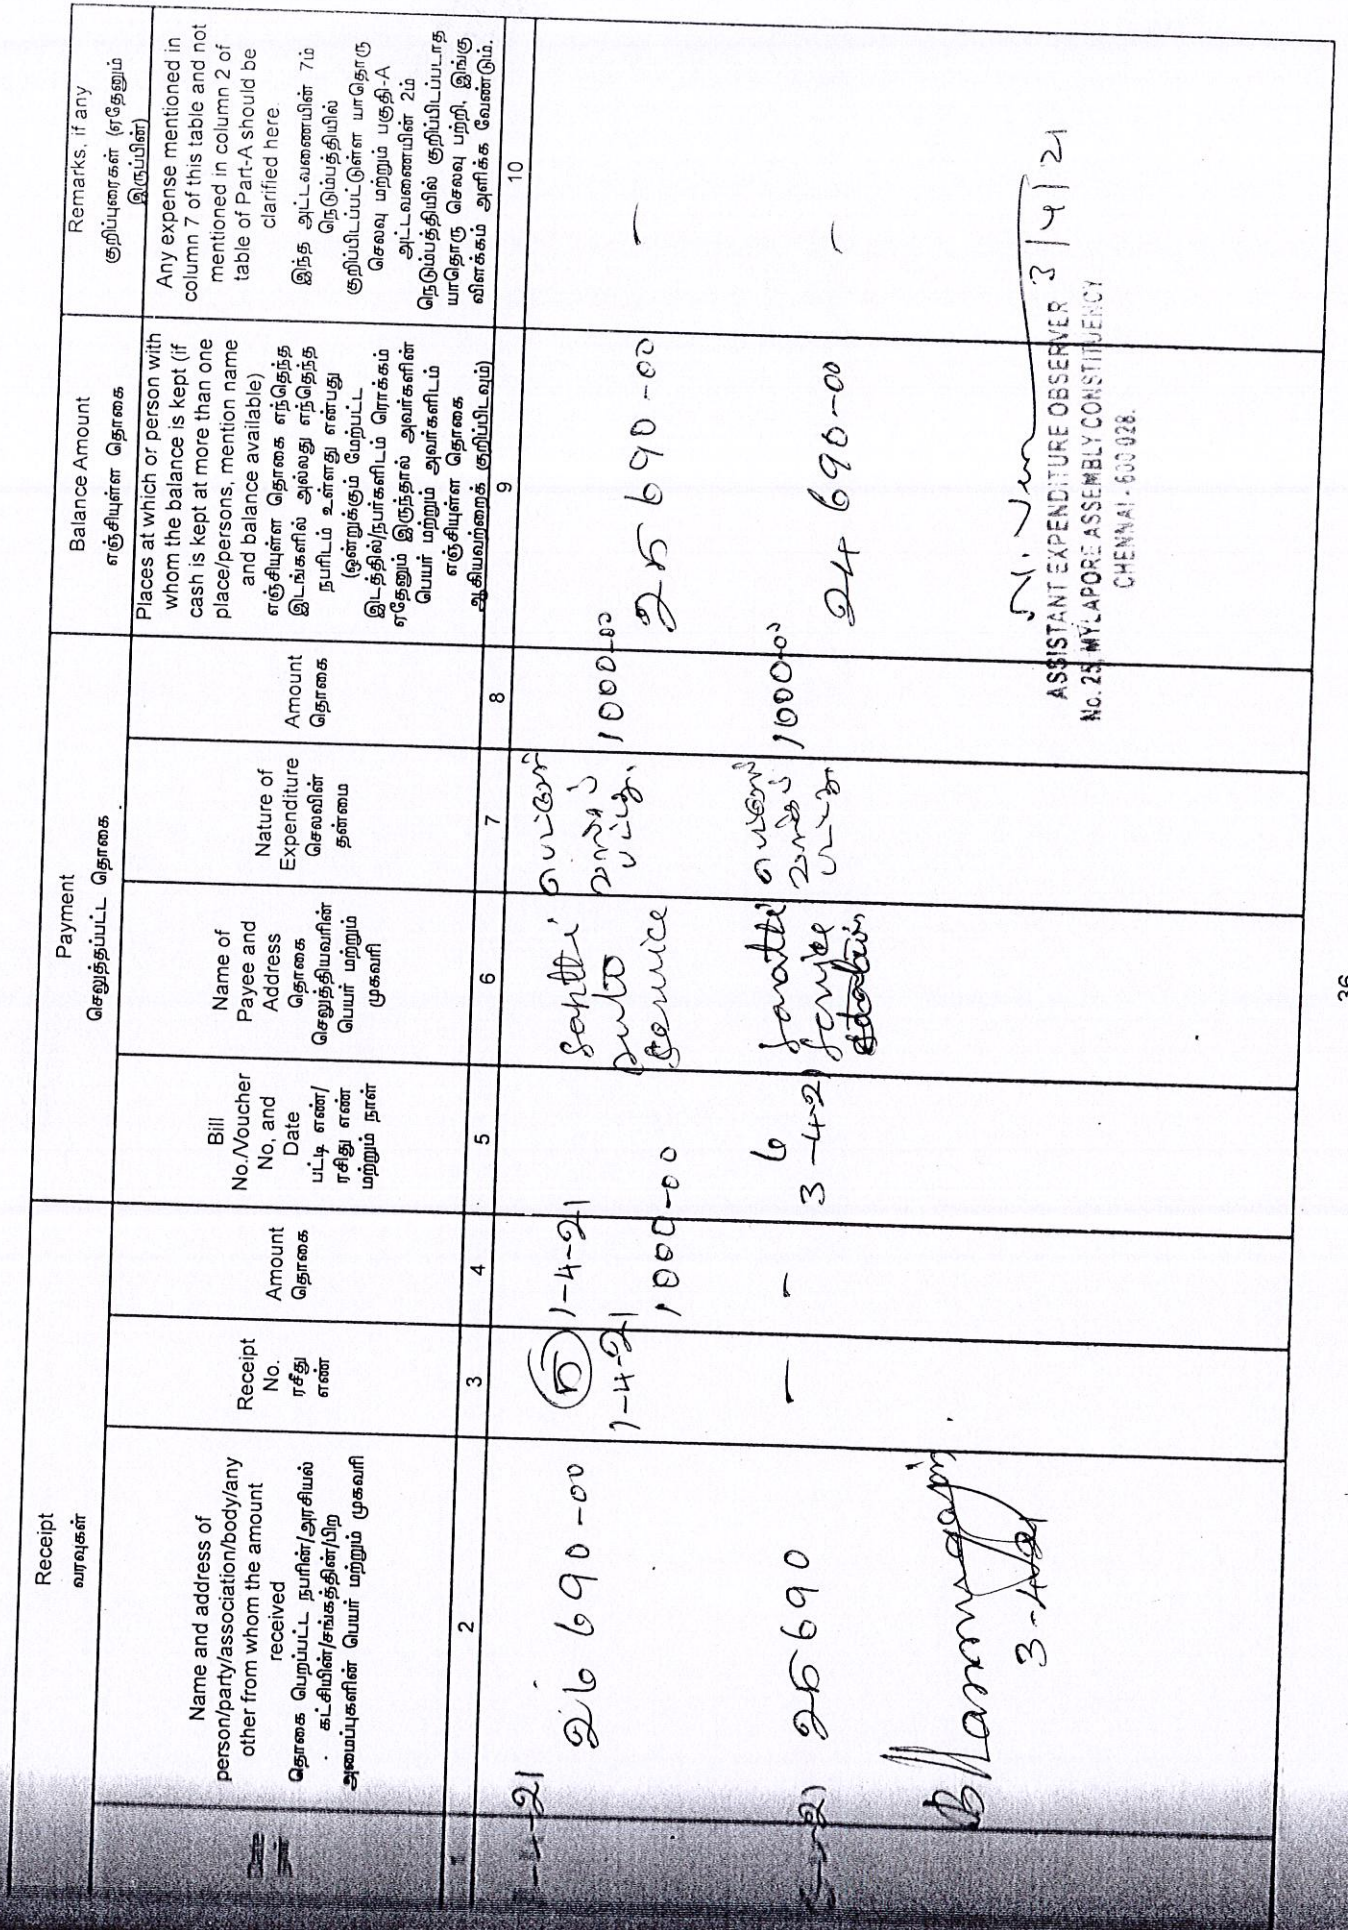 Receipt
வரவுகள்
Payment
செலுத்தப்பட்ட தொகை
Balance Amount
எஞ்சியுள்ள தொகை
Remarks, if any
குறிப்புரைகள் (ஏதேனும்
இருப்பின்)
Name and address of
person/party/association/body/any
other from whom the amount
received
தொகை பெறப்பட்ட நபரின்/அரசியல்
கட்சியின்/சங்கத்தின்/பிற
அமைப்புகளின் பெயர் மற்றும் முகவரி
Receipt
No.
ரசீது
எண்
Amount
தொகை
Bill
No./Voucher
No, and
Date
பட்டி எண்/
ரசிது எண்
மற்றும் நாள்
Name of
Payee and
Address
தொகை
செலுத்தியவரின்
பெயர் மற்றும்
முகவரி
Nature of
Expenditure
செலவின்
தன்மை
Amount
தொகை
Places at which or person with
whom the balance is kept (if
cash is kept at more than one
place/persons, mention name
and balance available)
எஞ்சியுள்ள தொகை எந்தெந்த
இடங்களில் அல்லது எந்தெந்த
நபரிடம் உள்ளது என்பது
(ஒன்றுக்கும் மேற்பட்ட
இடத்தில்/நபர்களிடம் ரொக்கம்
ஏதேனும் இருந்தால் அவர்களின்
பெயர் மற்றும் அவர்களிடம்
எஞ்சியுள்ள தொகை
ஆகியவற்றைக் குறிப்பிடவும்)
Any expense mentioned in
column 7 of this table and not
mentioned in column 2 of
table of Part-A should be
clarified here.
இந்த அட்டவணையின் 7ம்
நெடும்பத்தியில்
குறிப்பிடப்பட்டுள்ள யாதொரு
செலவு மற்றும் பகுதி-A
அட்டவணையின் 2ம்
நெடும்பத்தியில் குறிப்பிடப்படாத
யாதொரு செலவு பற்றி, இங்கு
விளக்கம் அளிக்க வேண்டும்.
1 2 3 4 5 6 7 8 9 10
-4-21
26 690-00
5
1-4-21
1-4-21
1000-00
Auto
Service
1000-00
25 690-00
-
25690
-
-
6
3-4-21
Service
1000-00
24 690-00
-
3-4-21
3/4/21
ASSISTANT EXPENDITURE OBSERVER
No. 25, MYLAPORE ASSEMBLY CONSTITUENCY
CHENNAI - 600 028.
36